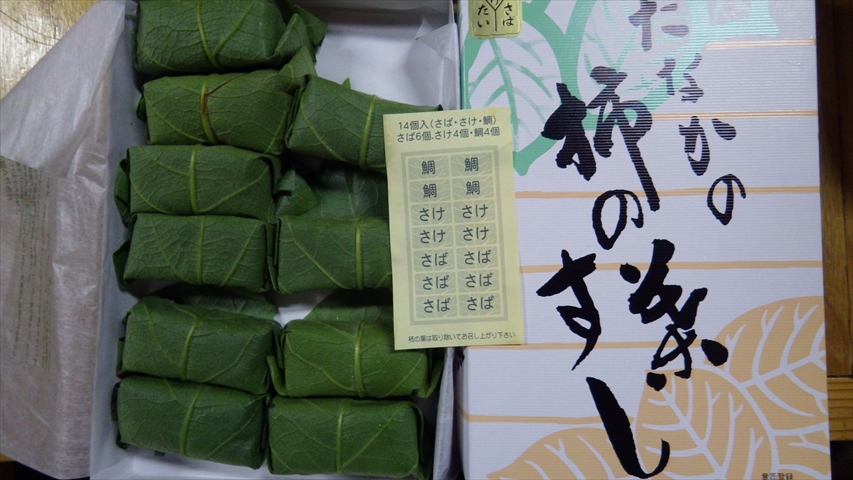 さば
たい
たなかの
柿の葉
すし
14個入(さば・さけ・鯛)
さば6個、さけ4個・鯛4個
鯛 鯛
鯛 鯛
さけ さけ
さけ さけ
さば さば
さば さば
さば さば
柿の葉は取り除いてお召し上がり下さい
意匠登録